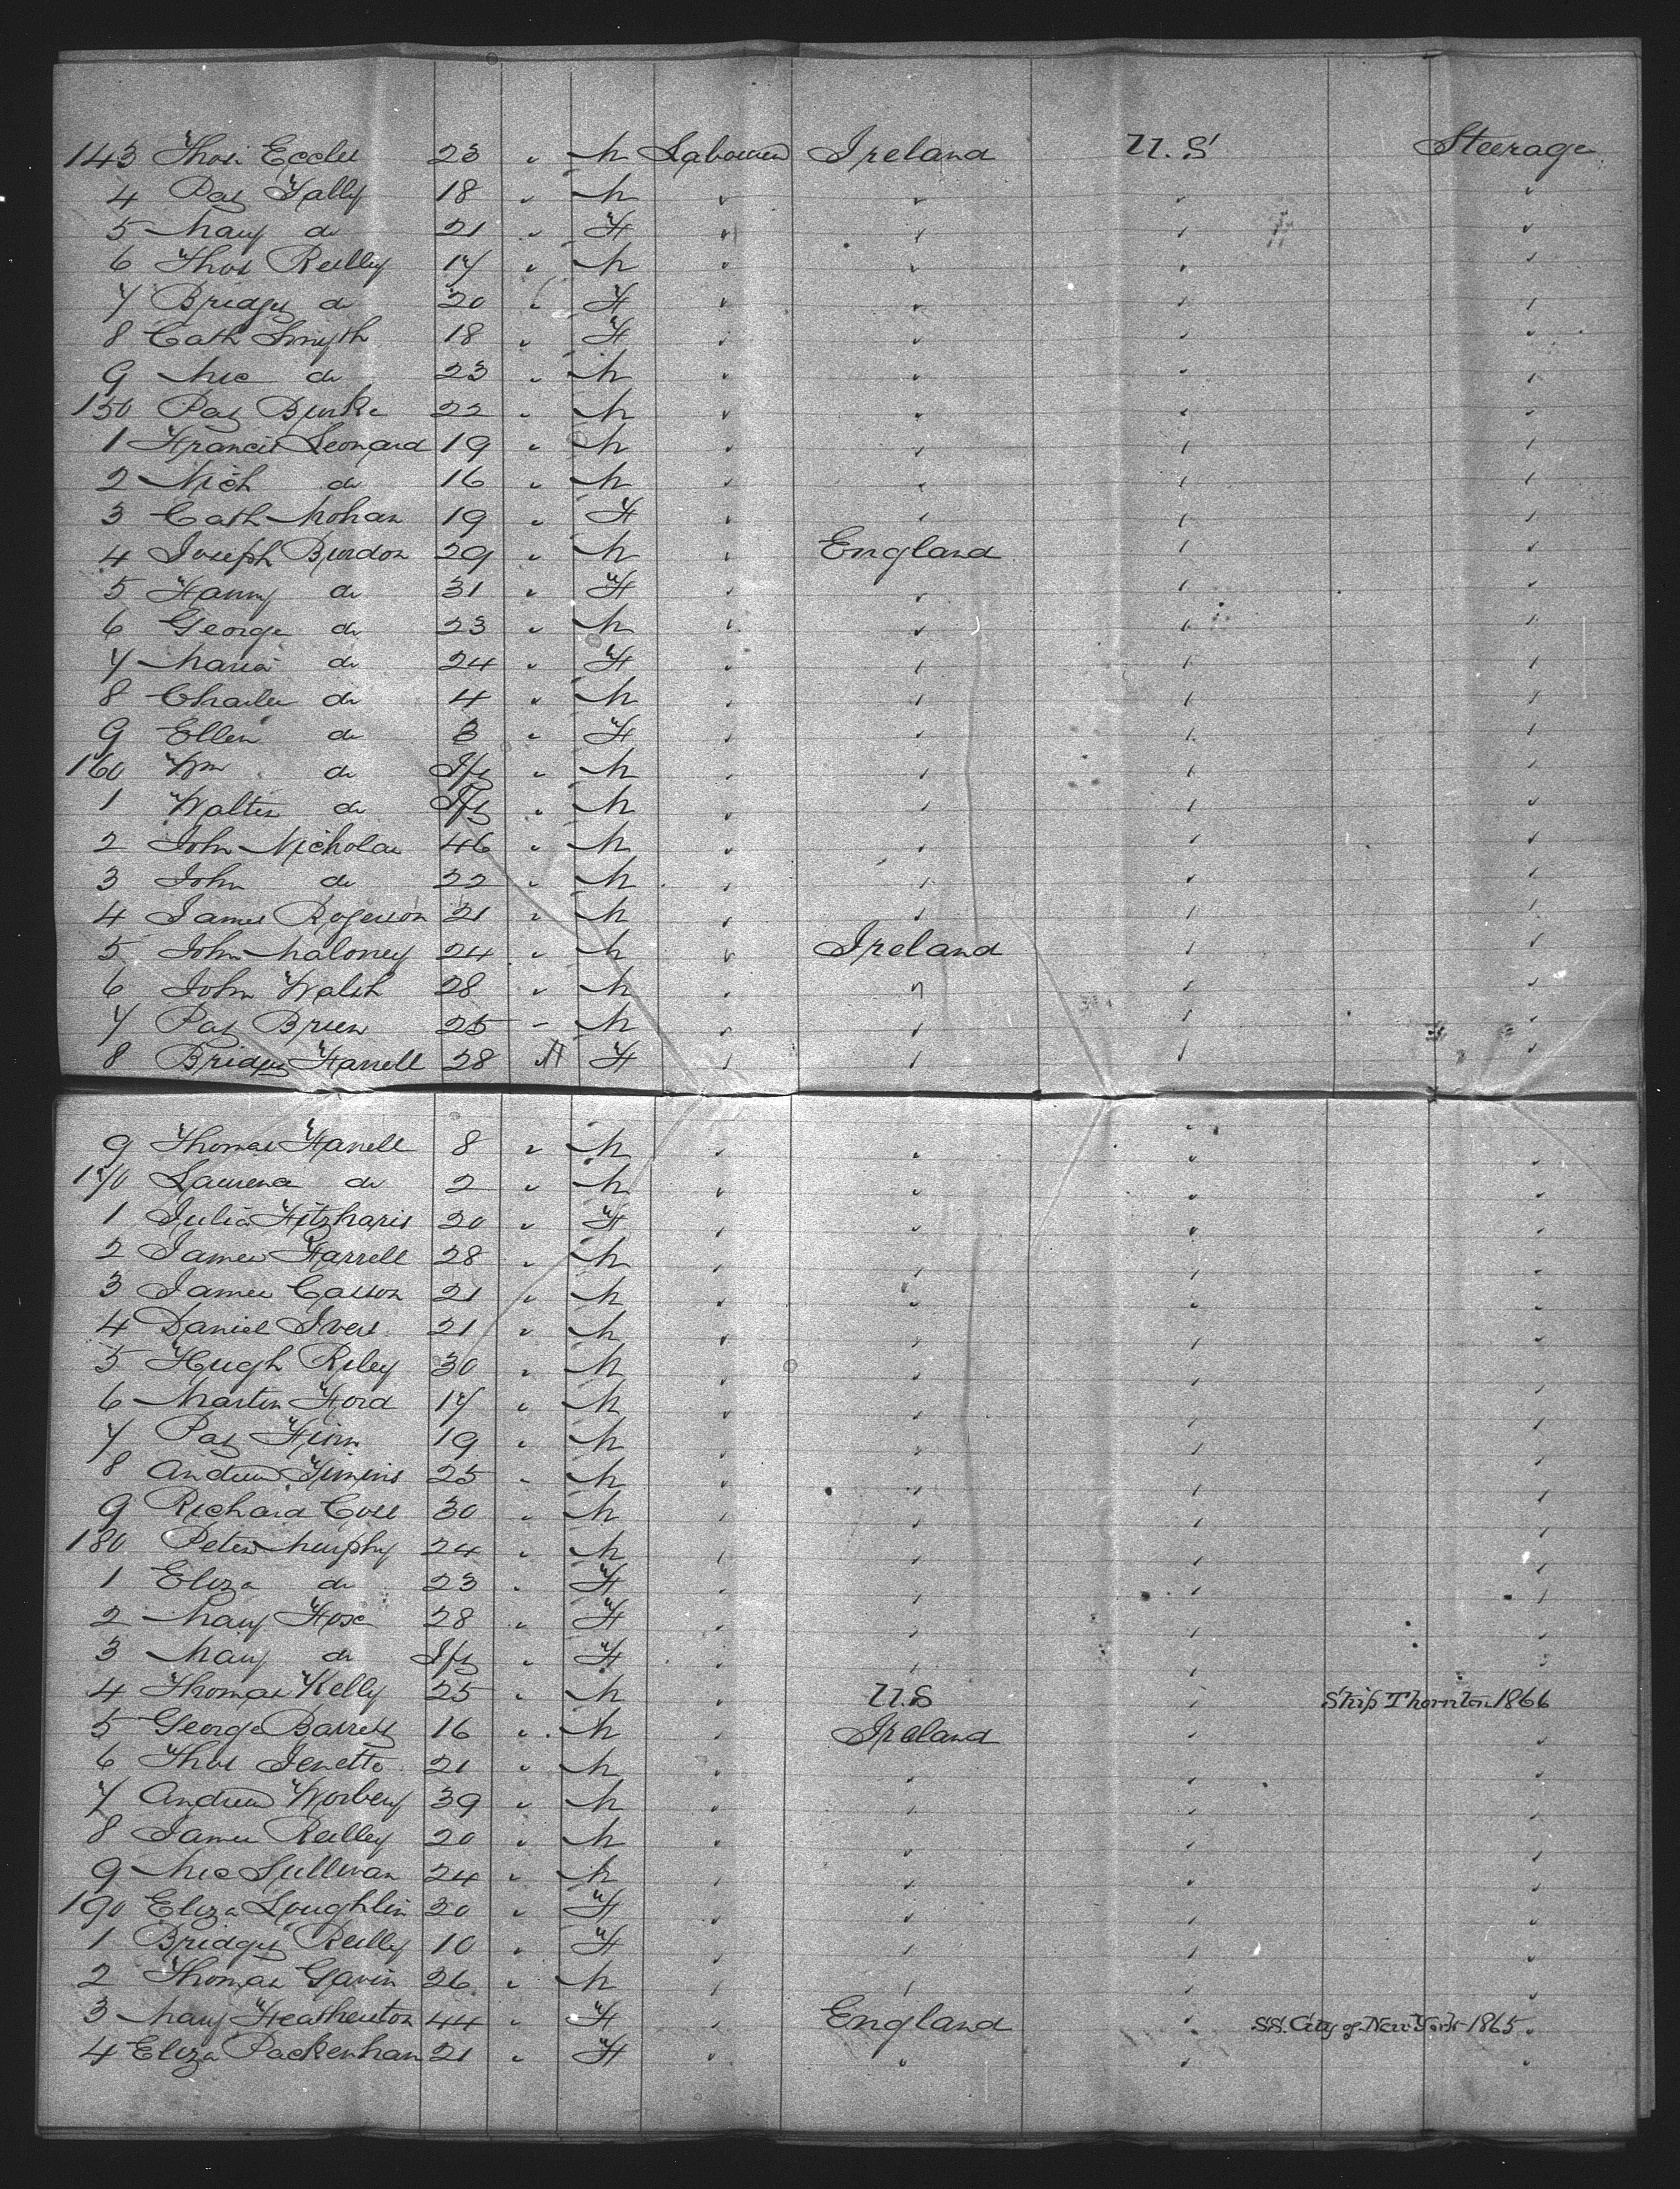 143 Thos Eccles 23 " M Labourer Ireland U.S Steerage
4 Pat Fally 18 " M " " " "
5 Mary do 21 " F " " " "
6 Thos Reilly 17 " M " " " "
7 Bridget do 20 " F " " " "
8 Cath Smyth 18 " F " " " "
9 Mic do 23 " M " " " "
150 Pat Burke 22 " M " " " "
1 Francis Leonard 19 " M " " " "
2 Mich do 16 " M " " " "
3 Cath Mohan 19 " F " " " "
4 Joseph Burdon 29 " M " England " "
5 Fanny do 31 " F " " " "
6 George do 23 " M " " " "
7 Maria do 24 " F " " " "
8 Charles do 4 " M " " " "
9 Ellen do 3 " F " " " "
160 Wm do Ift " M " " " "
1 Walter do Ift " M " " " "
2 John Nicholas 46 " M " " " "
3 John do 22 " M " " " "
4 James Rogerson 21 " M " " " "
5 John Maloney 24 " M " Ireland " "
6 John Walsh 28 " M " " " "
7 Pat Brien 25 " M " " " "
8 Bridget Farrell 28 " F " " " "
9 Thomas Farrell 8 " M " " " "
170 Laurence do 2 " M " " " "
1 Julia Fitzharis 20 " F " " " "
2 James Farrell 28 " M " " " "
3 James Casson 21 " M " " " "
4 Daniel Ivers 21 " M " " " "
5 Hugh Riley 30 " M " " " "
6 Martin Ford 17 " M " " " "
7 Pat Finn 19 " M " " " "
8 Andrew Timins 25 " M " " " "
9 Richard Cole 30 " M " " " "
180 Peter Murphy 24 " M " " " "
1 Eliza do 23 " F " " " "
2 Mary Fox 28 " F " " " "
3 Mary do Ift " F " " " "
4 Thomas Kelly 25 " M " U.S " Ship Thornton 1866
5 George Barrett 16 " M " Ireland " "
6 Thos Jenette 21 " M " " " "
7 Andrew Worbery 39 " M " " " "
8 James Reilley 20 " M " " " "
9 Mic Sullivan 24 " M " " " "
190 Eliza Loughlin 20 " F " " " "
1 Bridget Reilly 10 " F " " " "
2 Thomas Gavin 26 " M " " " "
3 Mary Featherston 44 " F " England " SS. City of New York 1865 "
4 Eliza Packenham 21 " F " " " "